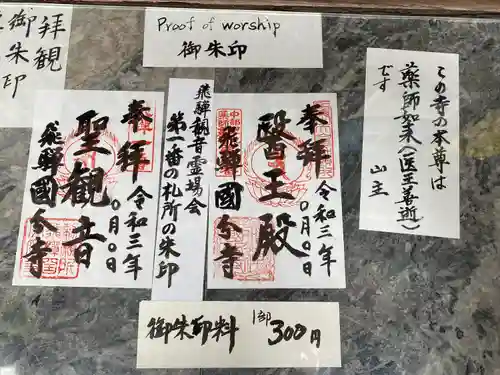 拝観
御朱印
Proof of worship
御朱印
この寺の本尊は
薬師如来(医王善逝)
です
山主
奉拝
令和三年
〇月〇日
聖観音
飛騨國分寺
飛騨観音霊場会
第一番の札所の朱印
奉拝
令和三年
〇月〇日
醫王殿
飛騨國分寺
御朱印料 1印 300円